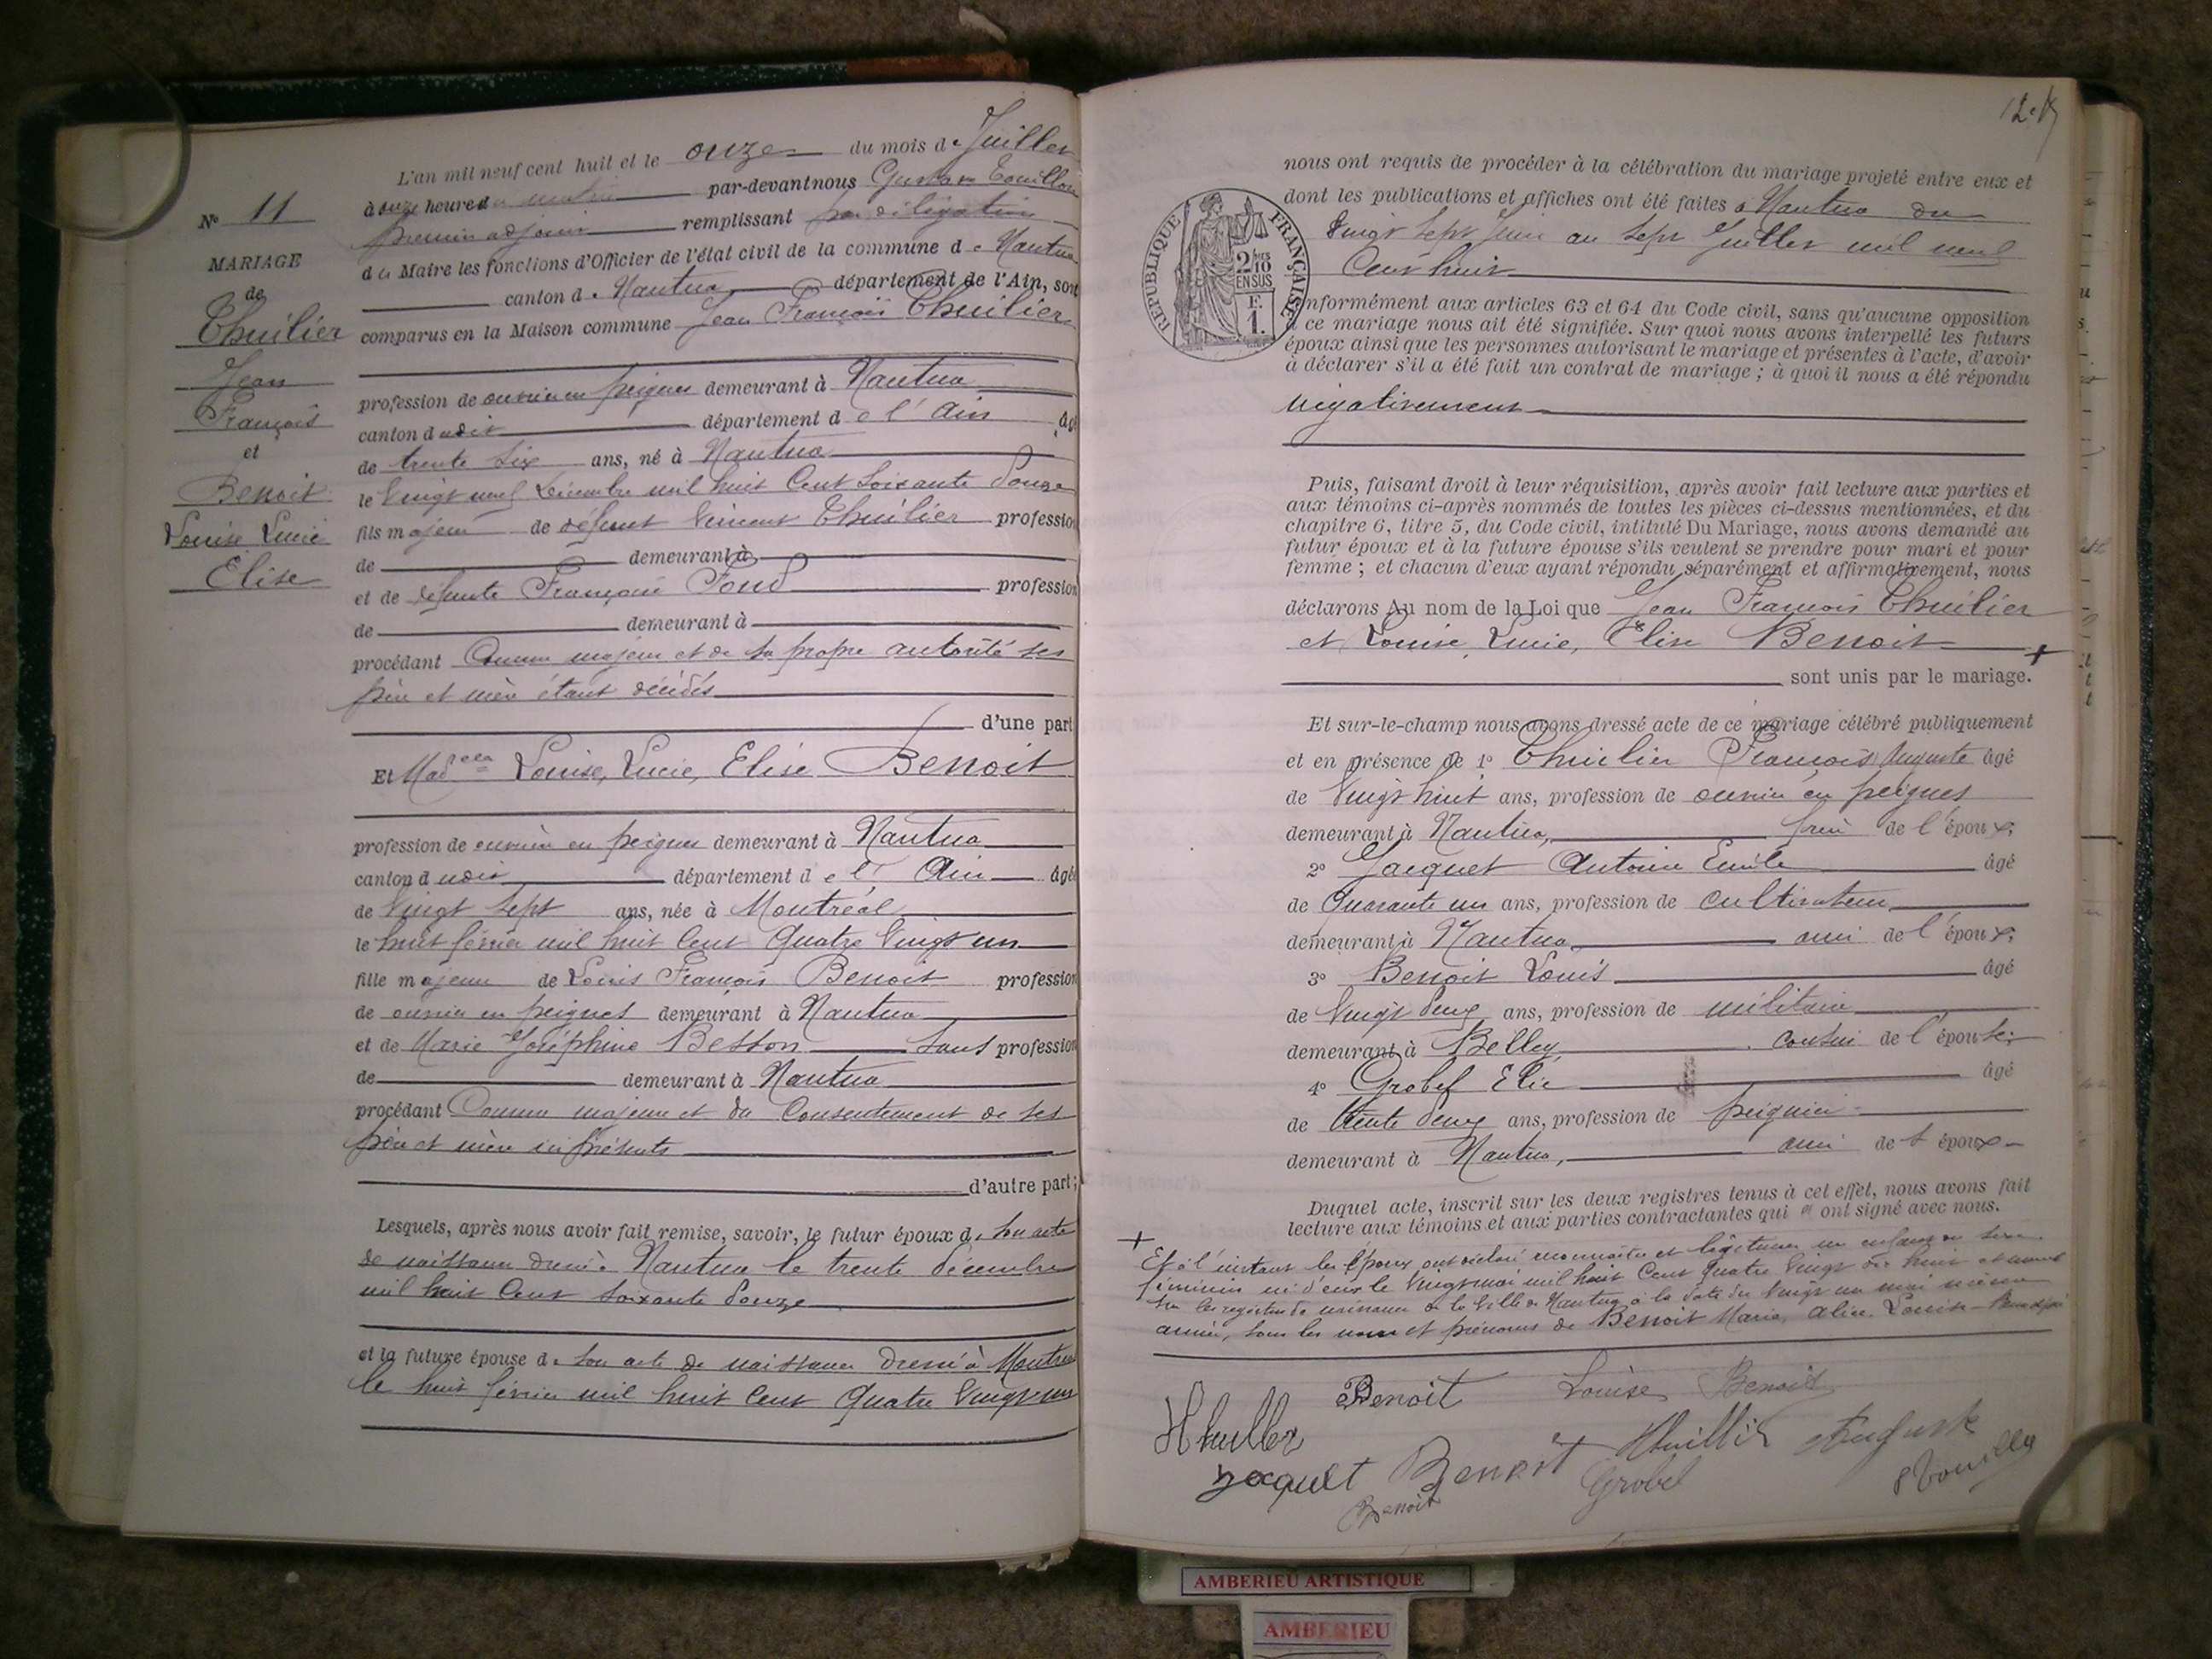 L'an mil neuf cent huit et le onze du mois de Juillet
à onze heures du matin par-devant nous Gustave Touillon
premier adjoint remplissant par délégation
du Maire les fonctions d'Officier de l'état civil de la commune de Nantua
canton de Nantua département de l'Ain, sont
comparus en la Maison commune Jean François Thuilier
profession de ouvrier en peignes demeurant à Nantua
canton dudit département de l'Ain âgé
de trente six ans, né à Nantua
le vingt neuf Décembre mil huit Cent Soixante Douze
fils majeur de défunt Vincent Thuilier profession
de demeurant à
et de défunte Françoise Fond profession
de demeurant à
procédant Comme majeur et de sa propre autorité ses
père et mère étant décédés
d'une part
Et Madelle Louise, Lucie, Elise Benoit
profession de ouvrière en peignes demeurant à Nantua
canton dudit département de l'Ain âgée
de Vingt Sept ans, née à Montréal
le huit février mil huit Cent Quatre Vingt un
fille majeure de Louis François Benoit profession
de ouvrier en peignes demeurant à Nantua
et de Marie Joséphine Besson sans profession
de demeurant à Nantua
procédant Comme majeure et du Consentement de ses
père et mère ici présents
d'autre part;
Lesquels, après nous avoir fait remise, savoir, le futur époux de son acte
de naissance dressé à Nantua le trente décembre
mil huit Cent soixante douze
et la future épouse de son acte de naissance dressé à Montréal
le huit février mil huit Cent Quatre Vingt un
N° 11
MARIAGE
de
Thuilier
Jean
François
et
Benoit
Louise Lucie
Elise
nous ont requis de procéder à la célébration du mariage projeté entre eux et
dont les publications et affiches ont été faites à Nantua du
Vingt Sept Juin au Sept Juillet mil neuf
Cent huit
RÉPUBLIQUE FRANÇAISE
2/10
EN SUS
F.
1.
nformément aux articles 63 et 64 du Code civil, sans qu'aucune opposition
à ce mariage nous ait été signifiée. Sur quoi nous avons interpellé les futurs
époux ainsi que les personnes autorisant le mariage et présentes à l'acte, d'avoir
à déclarer s'il a été fait un contrat de mariage; à quoi il nous a été répondu
négativement
Puis, faisant droit à leur réquisition, après avoir fait lecture aux parties et
aux témoins ci-après nommés de toutes les pièces ci-dessus mentionnées, et du
chapitre 6, titre 5, du Code civil, intitulé Du Mariage, nous avons demandé au
futur époux et à la future épouse s'ils veulent se prendre pour mari et pour
femme; et chacun d'eux ayant répondu séparément et affirmativement, nous
déclarons Au nom de la Loi que Jean François Thuilier
et Louise, Lucie, Elise Benoit +
sont unis par le mariage.
Et sur-le-champ nous avons dressé acte de ce mariage célébré publiquement
et en présence de 1° Thuilier François Auguste âgé
de Vingt huit ans, profession de ouvrier en peignes
demeurant à Nantua, frère de l'époux;
2° Jacquet Antoine Emile âgé
de Quarante un ans, profession de cultivateur
demeurant à Nantua, ami de l'époux;
3° Benoit Louis âgé
de Vingt deux ans, profession de militaire
demeurant à Belley cousin de l'épouse;
4° Grobel Elie âgé
de trente deux ans, profession de peignier
demeurant à Nantua, ami de l'époux
Duquel acte, inscrit sur les deux registres tenus à cet effet, nous avons fait
lecture aux témoins et aux parties contractantes qui ont signé avec nous.
+ Et à l'instant les Epoux ont déclaré reconnaître et légitimer un enfant du sexe
féminin né d'eux le Vingt mai mil huit Cent Quatre Vingt dix huit et inscrit
sur les registres de naissance de la Ville de Nantua à la date du Vingt un mai même
année, sous les nom et prénoms de Benoit Marie, Alice, Louise
Benoit Louise Benoit
Thuiller
Jaquet Benoit Thuillier Auguste
Benoit Grobel GTouillon
AMBERIEU ARTISTIQUE
AMBERIEU